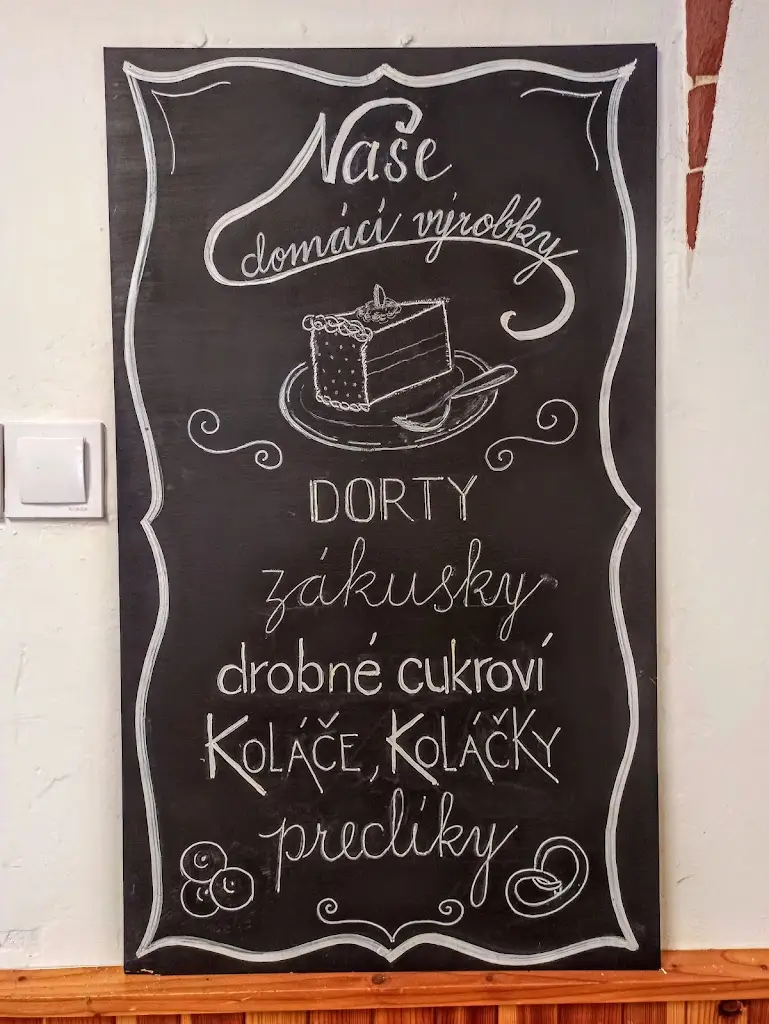 Naše
domácí výrobky
DORTY
zákusky
drobné cukroví
KOLÁČE, KOLÁČKY
preclíky